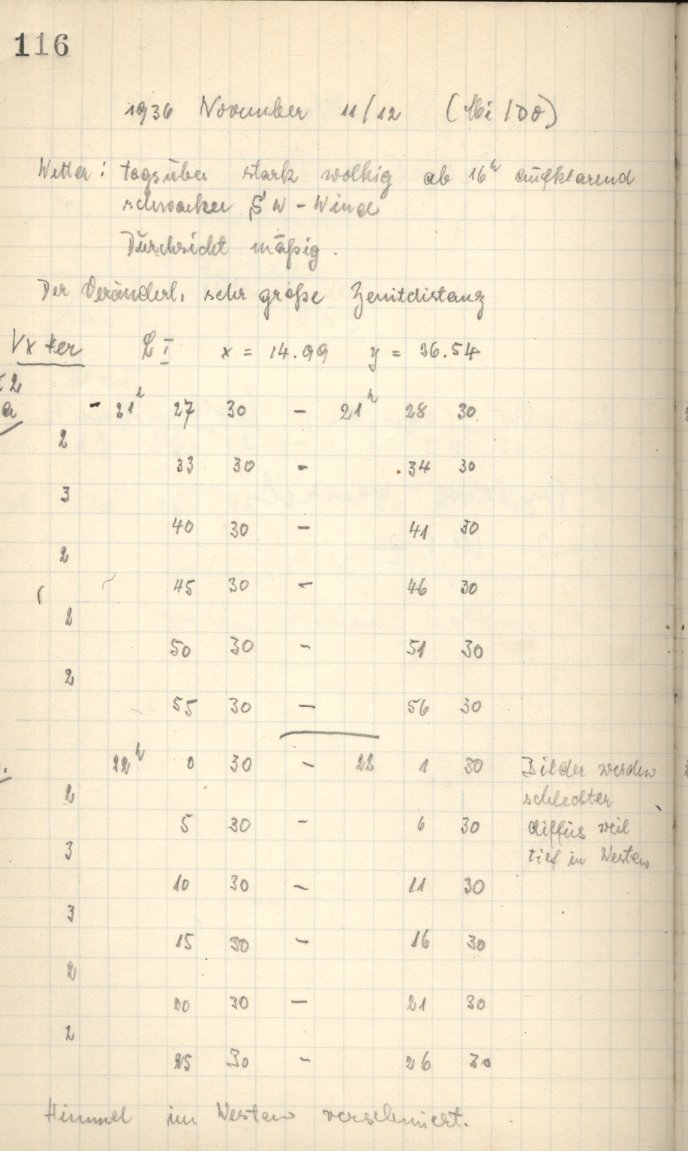 116
1936 November 11/12 (Mi/Do)
Wetter: tagsüber stark wolkig ab 16h aufklarend
schwacher SW-Wind
Durchsicht mäßig.
Der Veränderl. sehr große Zenitdistanz
I x = 14.99 y = 36.54
- 21h 27 30 - 21h 28 30
2
33 30 - 34 30
3
40 30 - 41 30
2
45 30 - 46 30
2
50 30 - 51 30
2
55 30 - 56 30
22h 0 30 - 22 1 30 Bilder werden
2 schlechter
5 30 - 6 30 diffus weil
3 tief im Westen
10 30 - 11 30
3
15 30 - 16 30
2
20 30 - 21 30
2
25 30 - 26 30
Himmel im Westen verschmiert.